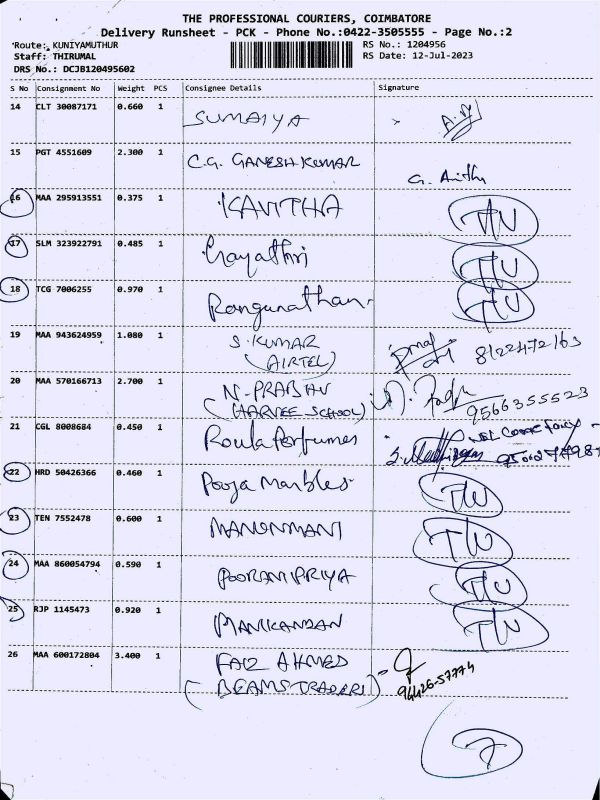 THE PROFESSIONAL COURIERS, COIMBATORE
Delivery Runsheet - PCK - Phone No.:0422-3505555 - Page No.:2
Route: KUNIYAMUTHUR RS No.: 1204956
Staff: THIRUMAL RS Date: 12-Jul-2023
DRS No.: DCJB120495602
S No Consignment No Weight PCS Consignee Details Signature
14 CLT 30087171 0.660 1 SUMAIYA
15 PGT 4551609 2.300 1 C.G. GANESH KUMAR G.
16 MAA 295913551 0.375 1 KAVITHA
17 SLM 323922791 0.485 1 Gayathri
18 TCG 7006255 0.970 1 Rangunathan
19 MAA 943624959 1.080 1 S.KUMAR
(AIRTEL) 8122472163
20 MAA 570166713 2.700 1 N-PRABHU
(HARVEE-SCHOOL) 9566355523
21 CGL 8008684 0.450 1 Roula Perfumes
22 HRD 50426366 0.460 1 Pooja Marbles
23 TEN 7552478 0.600 1 MANONMANI
24 MAA 860054794 0.590 1 POORANIPRIYA
25 RJP 1145473 0.920 1 MANIKANDAN
26 MAA 600172804 3.400 1 FAIZ AHMED
(BEAMS TRADERS) 94426-57774
7